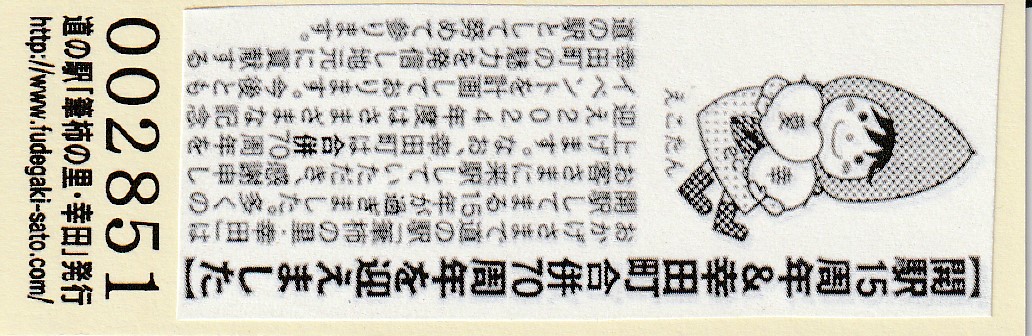 【開駅15周年&幸田町合併70周年を迎えました】
おかげさまで道の駅「筆柿の里・幸田」は
開駅してまる15年が過ぎました。多くの
お客さまに来駅していただき、感謝申し
上げます。なお、幸田町は町合併70周年を
迎え2024年度はさまざまな記念
イベントを計画しております。今後とも
幸田町の魅力を発信し地元に貢献する
道の駅として努めて参ります。
愛
幸
えこたん
002851
道の駅「筆柿の里・幸田」発行
http://www.fudegaki-sato.com/